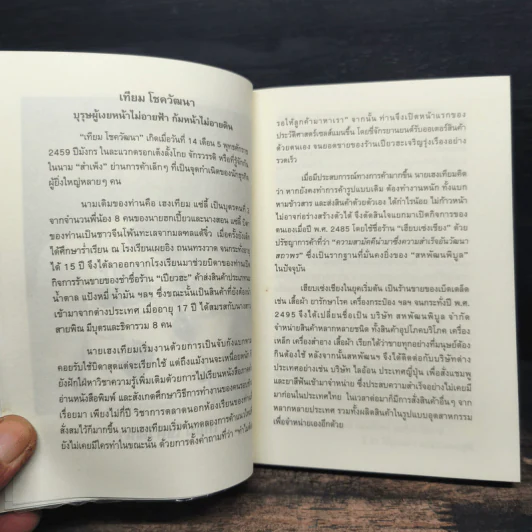 เทียม โชควัฒนา
บุรุษผู้เงยหน้าไม่อายฟ้า ก้มหน้าไม่อายดิน
"เทียม โชควัฒนา" เกิดเมื่อวันที่ 14 เดือน 5 พุทธศักราช
2459 ปีมังกร ในละแวกตรอกเต๊งตั้งโกย จักรวรรดิ หรือที่รู้จักกัน
ในนาม "สำเพ็ง" ย่านการค้าเล็กๆ ที่เป็นจุดกำเนิดของนักธุรกิจ
ผู้ยิ่งใหญ่หลายๆ คน
นามเดิมของท่านคือ เฮงเทียม แซ่ลี้ เป็นบุตรคนที่
จากจำนวนพี่น้อง 8 คนของนายเฮกเปี้ยวและนางสอน แซ่ลี้ บิดา
ของท่านเป็นชาวจีนโพ้นทะเลจากมณฑลแต้จิ๋ว เมื่อครั้งยังเด็ก
ได้ศึกษาร่ำเรียน ณ โรงเรียนเผยอิง ถนนทรงวาด จนกระทั่งอายุ
ได้ 15 ปี จึงได้ลาออกจากโรงเรียนมาช่วยบิดาของท่าน
กิจการร้านขายของชำชื่อร้าน "เปียวฮะ" ค้าส่งสินค้าประเภท
น้ำตาล แป้งหมี่ น้ำมัน ฯลฯ ซึ่งขณะนั้นเป็นสินค้าที่ยังต้อง
เข้ามาจากต่างประเทศ เมื่ออายุ 17 ปี ได้สมรสกับนาง
สายพิณ มีบุตรและธิดารวม 8 คน
นายเฮงเทียมเริ่มงานด้วยการเป็นจับกังแบก
คอยรับใช้บิดาสุดแต่จะเรียกใช้ แต่ถึงแม้งานจะเหนื่อยหนัก
ยังฝักใฝ่หาวิชาความรู้เพิ่มเติมด้วยการไปเรียนหนังสือภาค
อ่านหนังสือพิมพ์ และสังเกตศึกษาวิธีการทำงานของคนรอบ
เรื่อยมา เพียงไม่กี่ปี วิชาการตลาดนอกห้องเรียนของท่าน
สั่งสมไว้ก็มากขึ้น นายเฮงเทียมเริ่มต้นทดลองการค้าแนวใหม่
ยังไม่เคยมีใครทำในขณะนั้น ด้วยการตั้งคำถามที่ว่า "ทำไม
รอให้ลูกค้ามาหาเรา" จากนั้น ท่านจึงเปิดหน้าแรกของ
ประวัติศาสตร์เซลส์แมนขึ้น โดยขี่จักรยานยนต์รับออเดอร์สินค้า
ด้วยตนเอง จนยอดขายของร้านเปียวฮะเจริญรุ่งเรืองอย่าง
รวดเร็ว
เมื่อมีประสบการณ์ทางการค้ามากขึ้น นายเฮงเทียมคิด
ว่า หากยังคงทำการค้ารูปแบบเดิม ต้องทำงานหนัก ทั้งแบก
หามข้าวสาร และส่งสินค้าด้วยตัวเอง ได้กำไรน้อย ไม่ก้าวหน้า
ไม่อาจก่อร่างสร้างตัวได้ จึงตัดสินใจแยกมาเปิดกิจการของ
ตนเองเมื่อปี พ.ศ. 2485 โดยใช้ชื่อร้าน "เฮียบเซ่งเชียง" ด้วย
ปรัชญาการค้าที่ว่า "ความสามัคคีนำมาซึ่งความสำเร็จอันวัฒนา
สถาพร" ซึ่งเป็นรากฐานที่มั่นคงยิ่งของ "สหพัฒนพิบูล"
ในปัจจุบัน
เฮียบเซ่งเชียงในยุคเริ่มต้น เป็นร้านขายของเบ็ดเตล็ด
เช่น เสื้อผ้า ยารักษาโรค เครื่องกระป๋อง ฯลฯ จนกระทั่งปี พ.ศ.
2495 จึงได้เปลี่ยนชื่อเป็น บริษัท สหพัฒนพิบูล จำกัด
จำหน่ายสินค้าหลากหลายชนิด ทั้งสินค้าอุปโภคบริโภค เครื่อง
เหล็ก เครื่องสำอาง เสื้อผ้า เรียกได้ว่าขายทุกอย่างที่มนุษย์ต้อง
กินต้องใช้ หลังจากนั้นสหพัฒนฯ จึงได้ติดต่อกับบริษัทต่าง
ประเทศอย่างเช่น บริษัท ไลอ้อน ประเทศญี่ปุ่น เพื่อสั่งแชมพู
และยาสีฟันเข้ามาจำหน่าย ซึ่งประสบความสำเร็จอย่างไม่เคยมี
มาก่อนในประเทศไทย ในเวลาต่อมาก็มีการสั่งสินค้าอื่นๆ จาก
หลากหลายประเทศ รวมทั้งผลิตสินค้าในรูปแบบอุตสาหกรรม
เพื่อจำหน่ายเองอีกด้วย